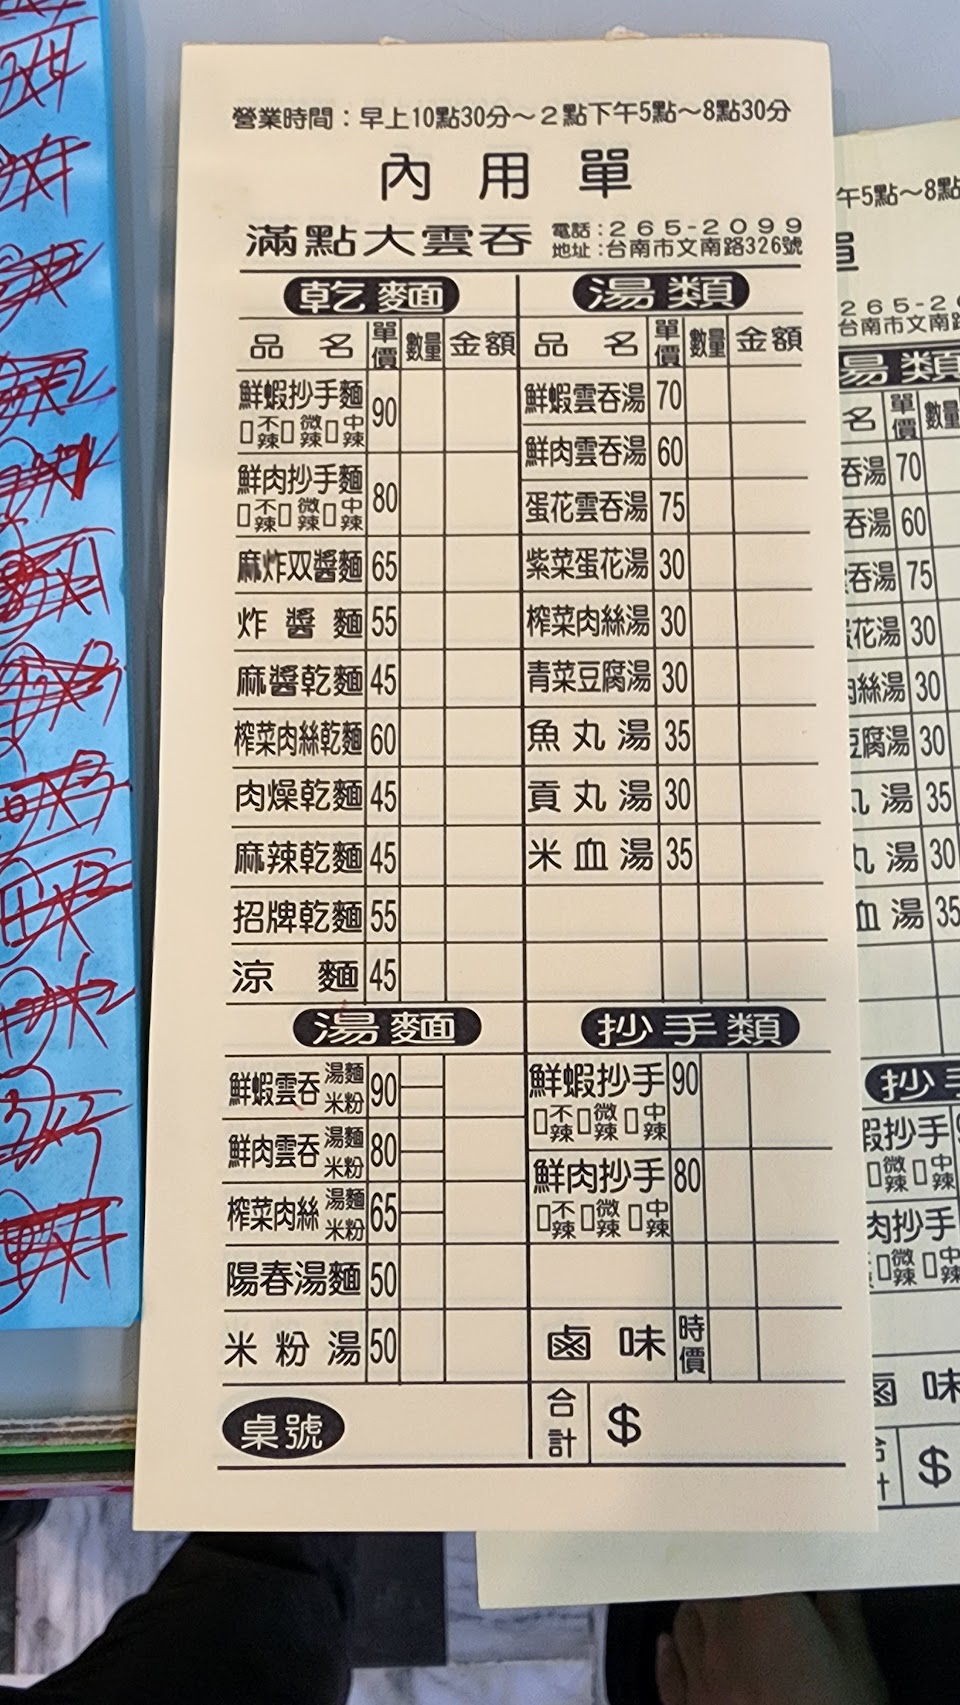 營業時間：早上10點30分～2點下午5點～8點30分
內用單
滿點大雲吞
電話：265-2099
地址：台南市文南路326號
乾麵
品名 單價 數量 金額
鮮蝦抄手麵 90
不辣 微辣 中辣
鮮肉抄手麵 80
不辣 微辣 中辣
麻炸双醬麵 65
炸醬麵 55
麻醬乾麵 45
榨菜肉絲乾麵 60
肉燥乾麵 45
麻辣乾麵 45
招牌乾麵 55
涼麵 45
湯類
品名 單價 數量 金額
鮮蝦雲吞湯 70
鮮肉雲吞湯 60
蛋花雲吞湯 75
紫菜蛋花湯 30
榨菜肉絲湯 30
青菜豆腐湯 30
魚丸湯 35
貢丸湯 30
米血湯 35
湯麵
鮮蝦雲吞 湯麵 米粉 90
鮮肉雲吞 湯麵 米粉 80
榨菜肉絲 湯麵 米粉 65
陽春湯麵 50
米粉湯 50
抄手類
鮮蝦抄手 90
不辣 微辣 中辣
鮮肉抄手 80
不辣 微辣 中辣
鹵味 時價
桌號
合計 $
午5點～8點
單
265-2
台南市文南路
湯類
名 單價 數量
吞湯 70
吞湯 60
吞湯 75
蛋花湯 30
肉絲湯 30
豆腐湯 30
丸湯 35
丸湯 30
血湯 35
抄手
蝦抄手
微辣 中辣
肉抄手
微辣 中辣
鹵味
合計 $